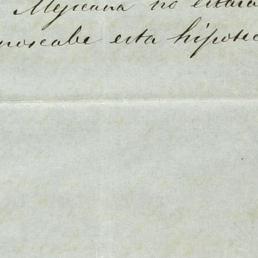 Mejicana no estará
noscabe esta hipotec